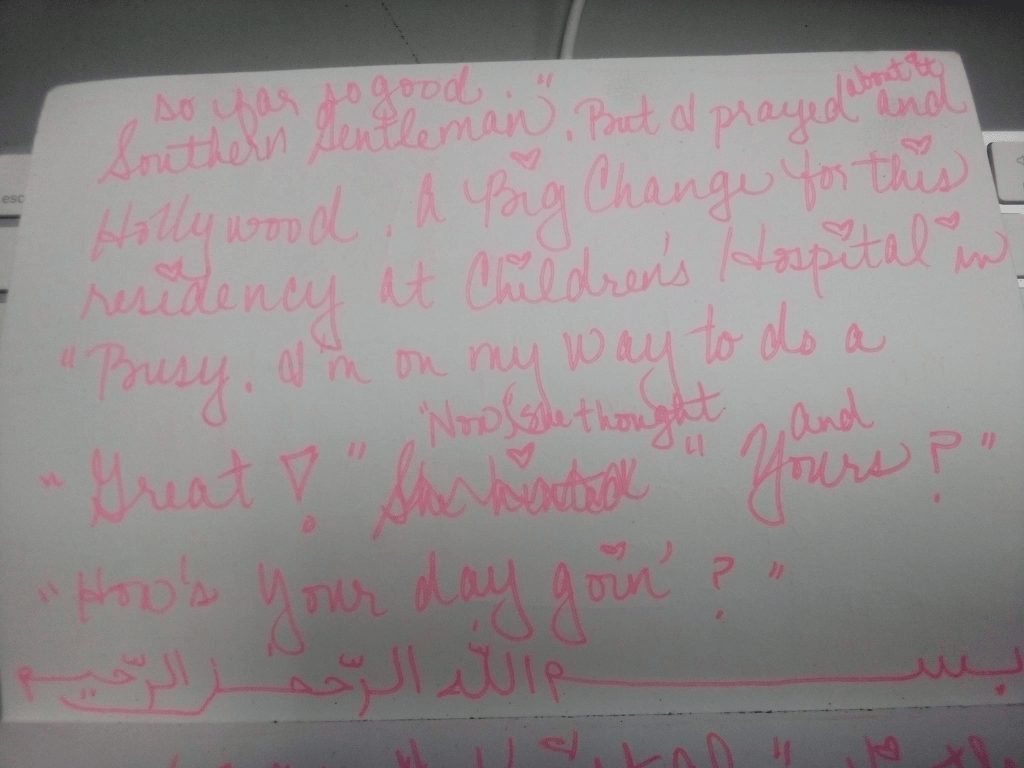 so far so good."
about it
Southern Gentleman". But I prayed and
Hollywood. A Big Change for this
residency at Children's Hospital in
"Busy. I'm on my way to do a
"Now", she thought and
"Great!" She "Yours?"
"How's your day goin'?"
بسم اللّه الرّحمن الرّحيم